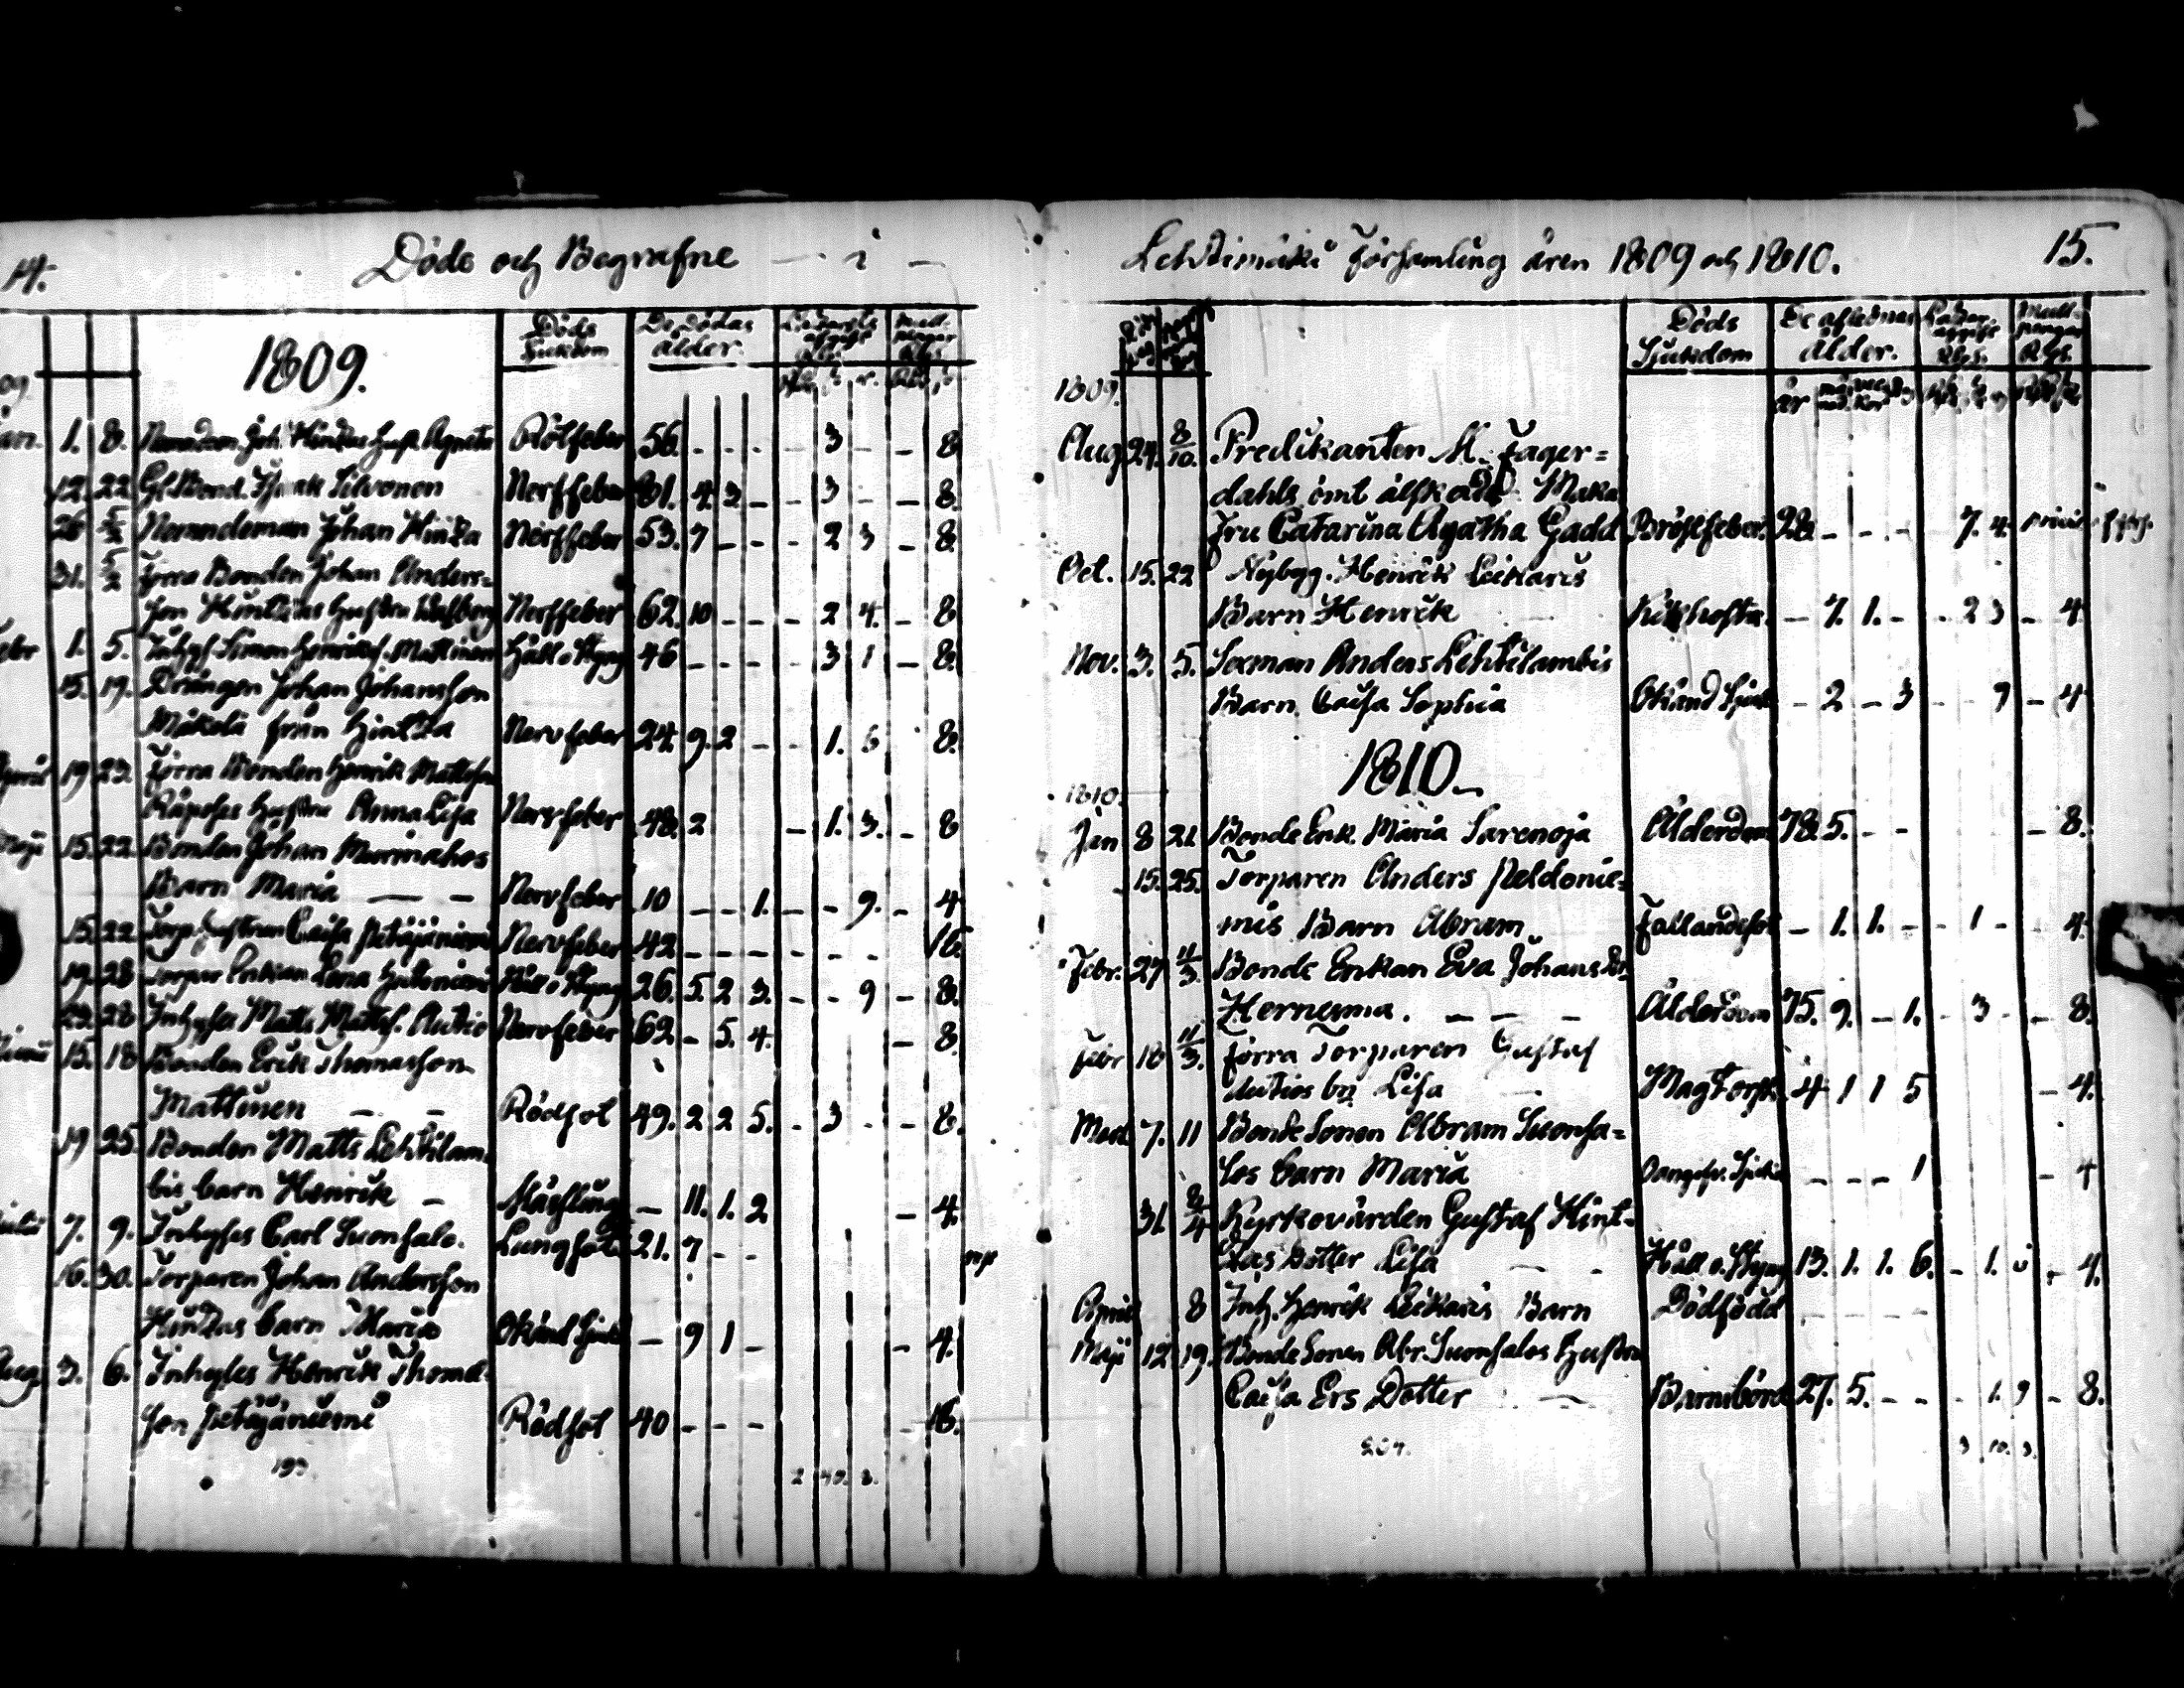 14.
Döde och Begrafne — i —
1809.
Döds Sjukdom
De Dödas ålder.
Jan. 1. 8. Nämndem. Joh. Hintzas Hust. Agneta Rötfeber 56. - - - - 3 - - 8
12. 22 Gl. Bond. Isaak Silvonen Nerffeber 81. 4. 3 - - 3 - - 8.
26 5/2 Nemndeman Johan Hintza Nerffeber 53. 7 - - - 2 3 - 8.
31. 5/2 Förra Bonden Johan Anders=
son Hintzas Hustru Walborg Nerffeber 62. 10 - - - 2 4. - 8
Febr 1. 5. Inhys. Simon Henrikss. Mattinen Håll o Styng 46 - - - - 3 1 - 8.
15. 19. Drängen Johan Johansson
Mäkelä från Hintza Nervfeber 24. 9. 2 - - 1. 8.
April 19 23. Förra Bonden Henrik Mattsson
Hustru Anna Lisa Nervfeber 48. 2 - 1. 3. - 8
Maji 15. 22. Bonden Johan
Barn Maria — — Nervfeber 10 - - 1. - - 9. - 4
15. 22 Torp. hustrun Caisa Petäjäniemi Nervfeber 42 - - - - - - 16.
19. 28 Torpar Enkian Lena Håll o Styng 26. 5. 2 3. - - 9 - 8.
23. 28 Inhyses Matts Matts. Autio Nervfeber 62 - 5. 4. - 8.
Junii 15. 18 Bonden Erik Thomasson
Mattinen — — Rödsot 49. 2 2 5. - 3 - - 8.
19 25. Bonden Matts Lehtilam=
bis barn Henrik — Mässling — 11. 1. 2 - 4.
Julii 7. 9. Inhyses Carl Suonsalo. Lungsot 21. 7 - -
16. 30. Torparen Johan Andersson
Hintzas barn Maria Okänd Sjukd — 9 1 - - 4.
Aug. 3. 6. Inhyses Henrik Thomas=
son Petäjäniemi Rödsot 40 - - - - 16.
Lehtimäki Församling åren 1809 och 1810. 15.
Döds Sjukdom
De aflednas ålder.
1809.
Aug 24. 8/10. Predikanten M. Fager=
dahls ömt älskade Maka
Fru Catarina Agatha Gadd Bröstfeber. 28. - - - 7. 4.
Oct. 15. 22 Nybygg. Henrik Leikaris
Barn Henrik Kikhosta. - 7. 1. - - 2 3 - 4
Nov. 3. 5. Sexman Anders Lehtilambis
Barn Caisa Sophia Okänd Sjukd - 2 - 3 - - 9 - 4
1810.
1810.
Jan 8 21 Bonde Enk. Maria Sarenoja Ålderdom 78. 5. - - - 8.
15. 25. Torparen Anders Peldonie=
mis Barn Abram. Fallandesot - 1. 1. - - 1 - - 4.
Febr. 27 4/3. Bonde Enkan Eva Johans Dr
Hernesma. — — — Ålderdom 75. 9. - 1. - 3 - - 8.
Febr 18 4/3. Förra Torparen Gustaf
Autios bn Lisa Magtorsk. 4 1 1 5 - 4.
Mart 7. 11 Bonde Sonen Abram Suonsa=
los barn Maria Oangifv. Sjukd - - - 1 - 4
31. 8/4 Kyrkovärden Gustaf Hint=
zas Dotter Lisa Håll o. Styng 13. 1. 1. 6. - 1. - 4.
April 8 Inh. Henrik Leikaris Barn Dödfödd - - - -
Maji 12 19. Bonde Sonen Abr. Suonsalos Hustru
Caisa Ers Dotter Barnsbörd 27. 5. - - - 1. 9 - 8.
204.